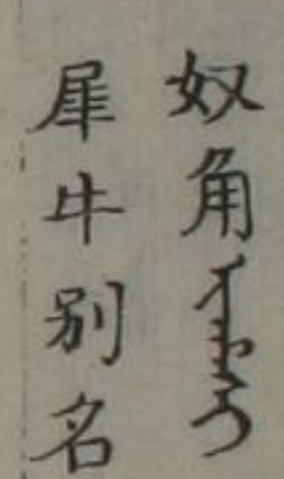 奴角
犀牛别名